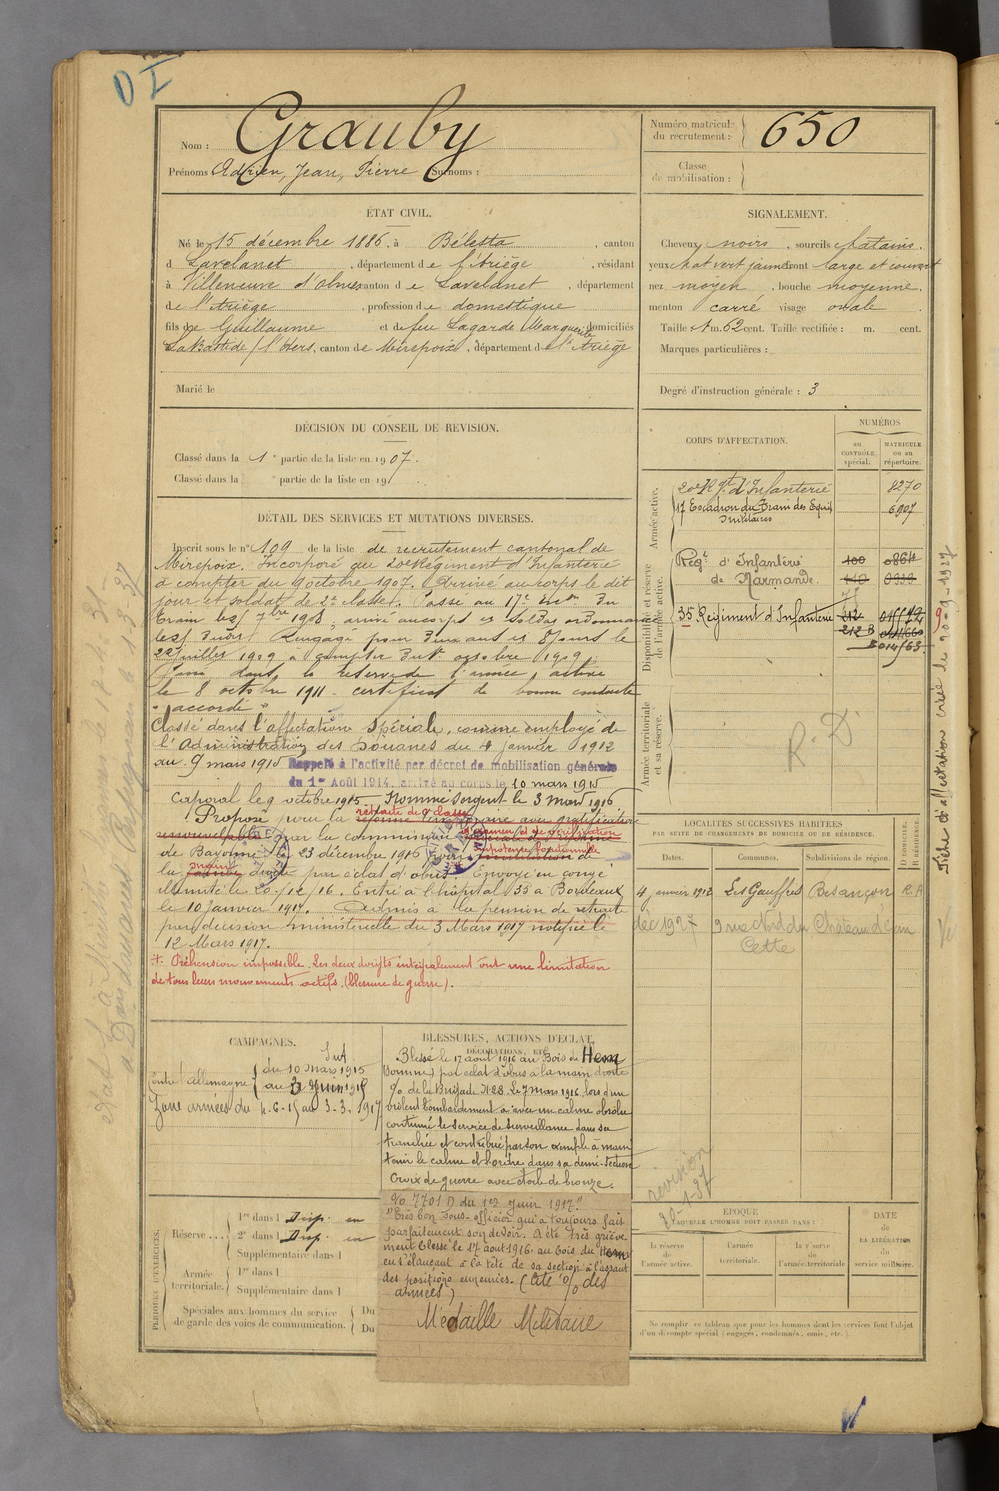 OI
Nom : Grauby
Prénoms Adrien, Jean, Pierre Surnoms :
Numéro matricule du recrutement : 650
Classe de mobilisation :
ÉTAT CIVIL.
Né le 15 décembre 1886, à Bélesta, canton
d Lavelanet, département de l'Ariège, résidant
à Villeneuve d'Olmes canton de Lavelanet, département
de l'Ariège, profession de domestique
fils de Guillaume et de feu Lagarde Marguerite domiciliés
La Bastide s/ l'Hers, canton de Mirepoix, département de l'Ariège
Marié le
SIGNALEMENT.
Cheveux noirs, sourcils châtains.
yeux chat vert jaune front large et couvert
nez moyen, bouche moyenne.
menton carré visage ovale.
Taille 1 m. 62 cent. Taille rectifiée : m. cent.
Marques particulières :
Degré d'instruction générale : 3
DÉCISION DU CONSEIL DE REVISION.
Classé dans la 1e partie de la liste en 1907.
Classé dans la e partie de la liste en 19
DÉTAIL DES SERVICES ET MUTATIONS DIVERSES.
Inscrit sous le n° 109 de la liste de recrutement cantonal de
Mirepoix. Incorporé au 20e Régiment d'Infanterie
à compter du 9 octobre 1907. Arrivé au corps le dit
jour et soldat de 2e classe. Passé au 17e Escon du
Train les 7bre 1908, arrivé au corps et soldat ordonnance
les dits jours. Rengagé pour deux ans et 8 jours le
22 juillet 1909 à compter du 1er octobre 1909.
Passé dans la réserve de l'armée active
le 8 octobre 1911. certificat de bonne conduite
"accordé"
Classé dans l'affectation spéciale, comme employé de
l'Administration des Douanes du 4 janvier 1912
au 9 mars 1915 Rappelé à l'activité par décret de mobilisation générale
du 1er Août 1914, arrivé au corps le 10 mars 1915
Caporal le 9 octobre 1915 Nommé Sergent le 3 mars 1916
Proposé pour la réforme temporaire avec gratification
retraite de 7e classe
renouvelable par la commission spéciale de réforme
examen et de vérification
de Bayonne le 23 décembre 1916 pour mutilation de
impotence fonctionnelle
la jambe droite par éclat d'obus. Envoyé en congé
main
illimité le 20/12/16. Entré à l'hôpital 35 à Bordeaux
le 10 Janvier 1917. Admis à la pension de retraite
par décision ministérielle du 3 Mars 1917 notifiée le
12 Mars 1917.
+. Préhension impossible. Les deux doigts intégralement ont une limitation
de tous leurs mouvements actifs. (blessure de guerre).
CORPS D'AFFECTATION.
NUMÉROS
au CONTRÔLE spécial.
MATRICULE ou au répertoire.
Armée active.
20e Rgt d'Infanterie 8270
17 Escadron du Train des Equip. militaires 6907
Disponibilité et réserve de l'armée active.
Régt d'Infanterie de Marmande.
35 Régiment d'Infanterie
Armée territoriale et sa réserve.
R. D.
Fiche d'affectation créée le 20-9-1927
LOCALITÉS SUCCESSIVES HABITÉES
PAR SUITE DE CHANGEMENTS DE DOMICILE OU DE RÉSIDENCE.
Dates. Communes. Subdivisions de région. D DOMICILE. R RÉSIDENCE.
4 janvier 1912 Les Gouffres Besançon R. A
déc 1927 9 rue Nord du Château d'eau
Cette
CAMPAGNES.
Int.
Contre l'Allemagne du 10 mars 1915
au 3 juin 1915
Zone armées du 4-6-15 au 3-3-1917
BLESSURES, ACTIONS D'ÉCLAT, DÉCORATIONS, ETC.
Blessé le 17 août 1916 au Bois de Hem
(Somme) par éclat d'obus à la main droite
o/o de la Brigade N° 28. Le 7 mars 1916, lors d'un
violent bombardement a avec un calme absolu
continué le service de surveillance dans sa
tranchée et contribué par son exemple à main
tenir le calme et l'ordre dans sa demi-section
Croix de guerre avec étoile de bronze.
o/o 7701 D du 1er Juin 1917."
"Très bon sous-officier qui a toujours fait
parfaitement son devoir. A été très griève
ment blessé le 17 août 1916 au bois du Hem
en s'élançant à la tête de sa section à l'assaut
des positions ennemies. (Cité o/o des
armées)
Médaille Militaire
PÉRIODES D'EXERCICES.
Réserve.... 1re dans l Disp. en
2e dans l Disp. en
Supplémentaire dans l
Armée territoriale. 1re dans l
Supplémentaire dans l
Spéciales aux hommes du service de garde des voies de communication. Du
Du
révision
20-1-37
ÉPOQUE
À LAQUELLE L'HOMME DOIT PASSER DANS :
DATE DE LA LIBÉRATION du service militaire.
la réserve de l'armée active.
l'armée territoriale.
la réserve de l'armée territoriale
Ne remplir ce tableau que pour les hommes dont les services font l'objet
d'un décompte spécial (engagés, condamnés, omis, etc.).